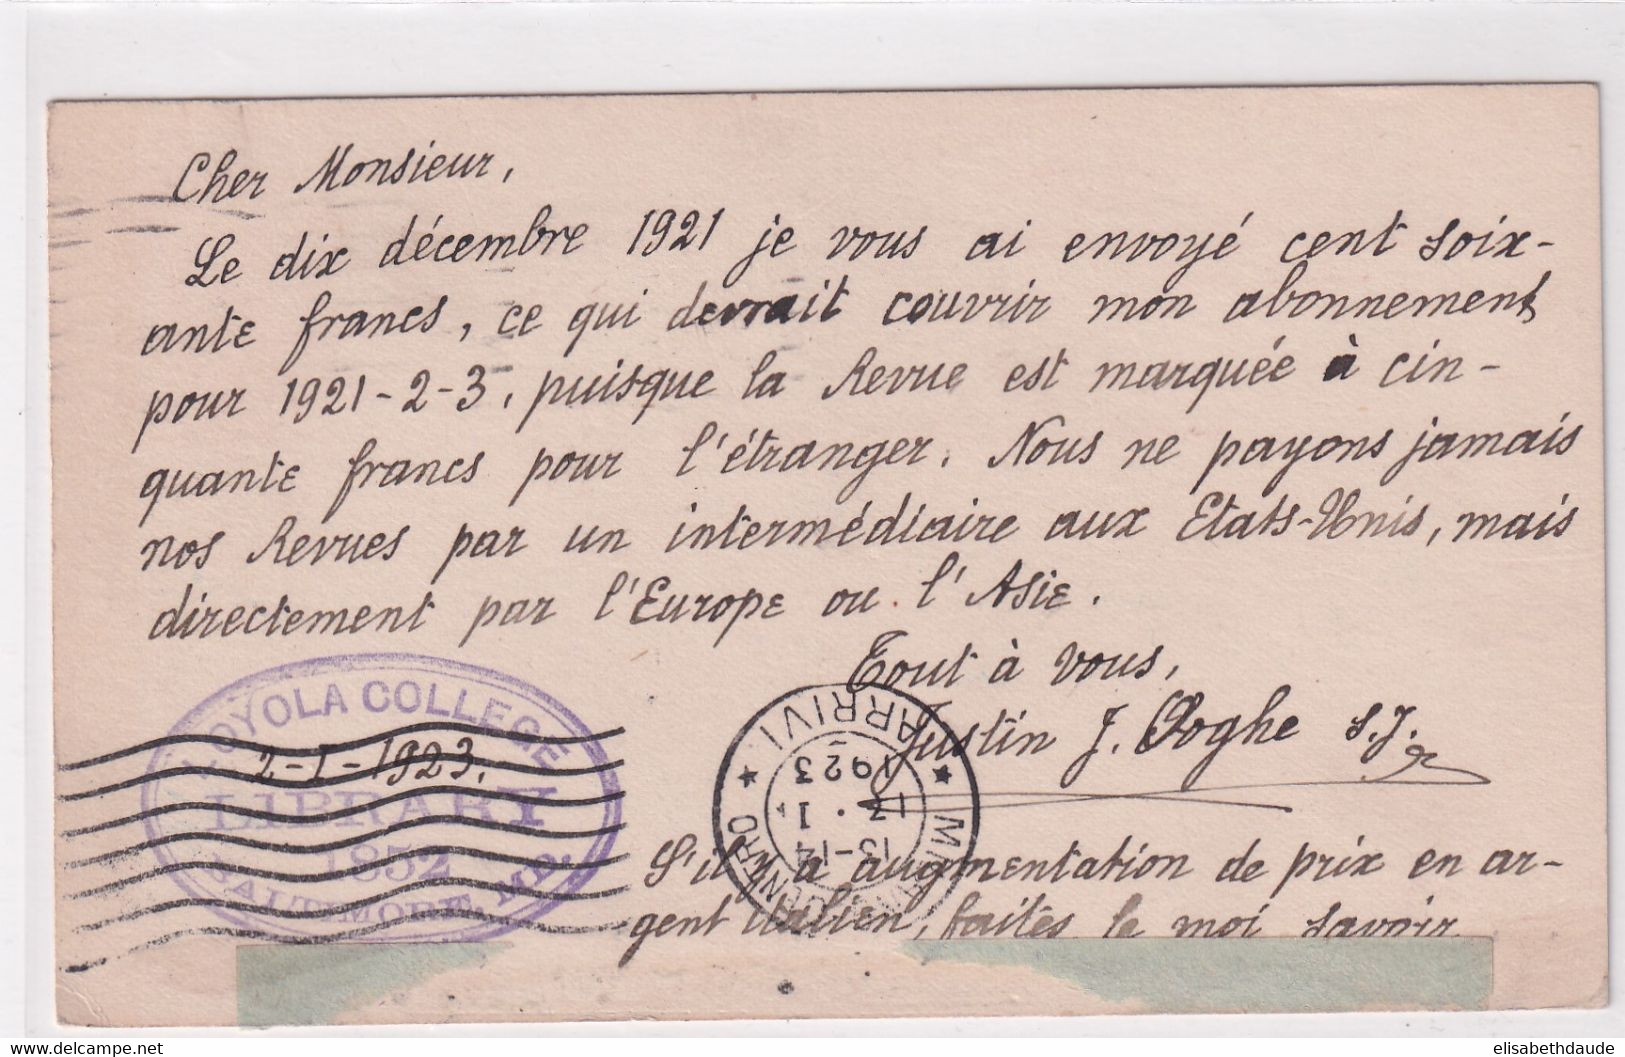 Cher Monsieur,
Le dix décembre 1921 je vous ai envoyé cent soix-
ante francs, ce qui devrait couvrir mon abonnement
pour 1921-2-3, puisque la Revue est marquée à cin-
quante francs pour l'étranger. Nous ne payons jamais
nos Revues par un intermédiaire aux Etats-Unis, mais
directement par l'Europe ou l'Asie.
Tout à vous,
Justin J. Ooghe S.J.
LOYOLA COLLEGE
2-I-1923.
LIBRARY
1852
BALTIMORE, MD.
ARRIVI
1923
13-14
S'il y a augmentation de prix en ar-
gent italien, faites le moi savoir
elisabethdaude